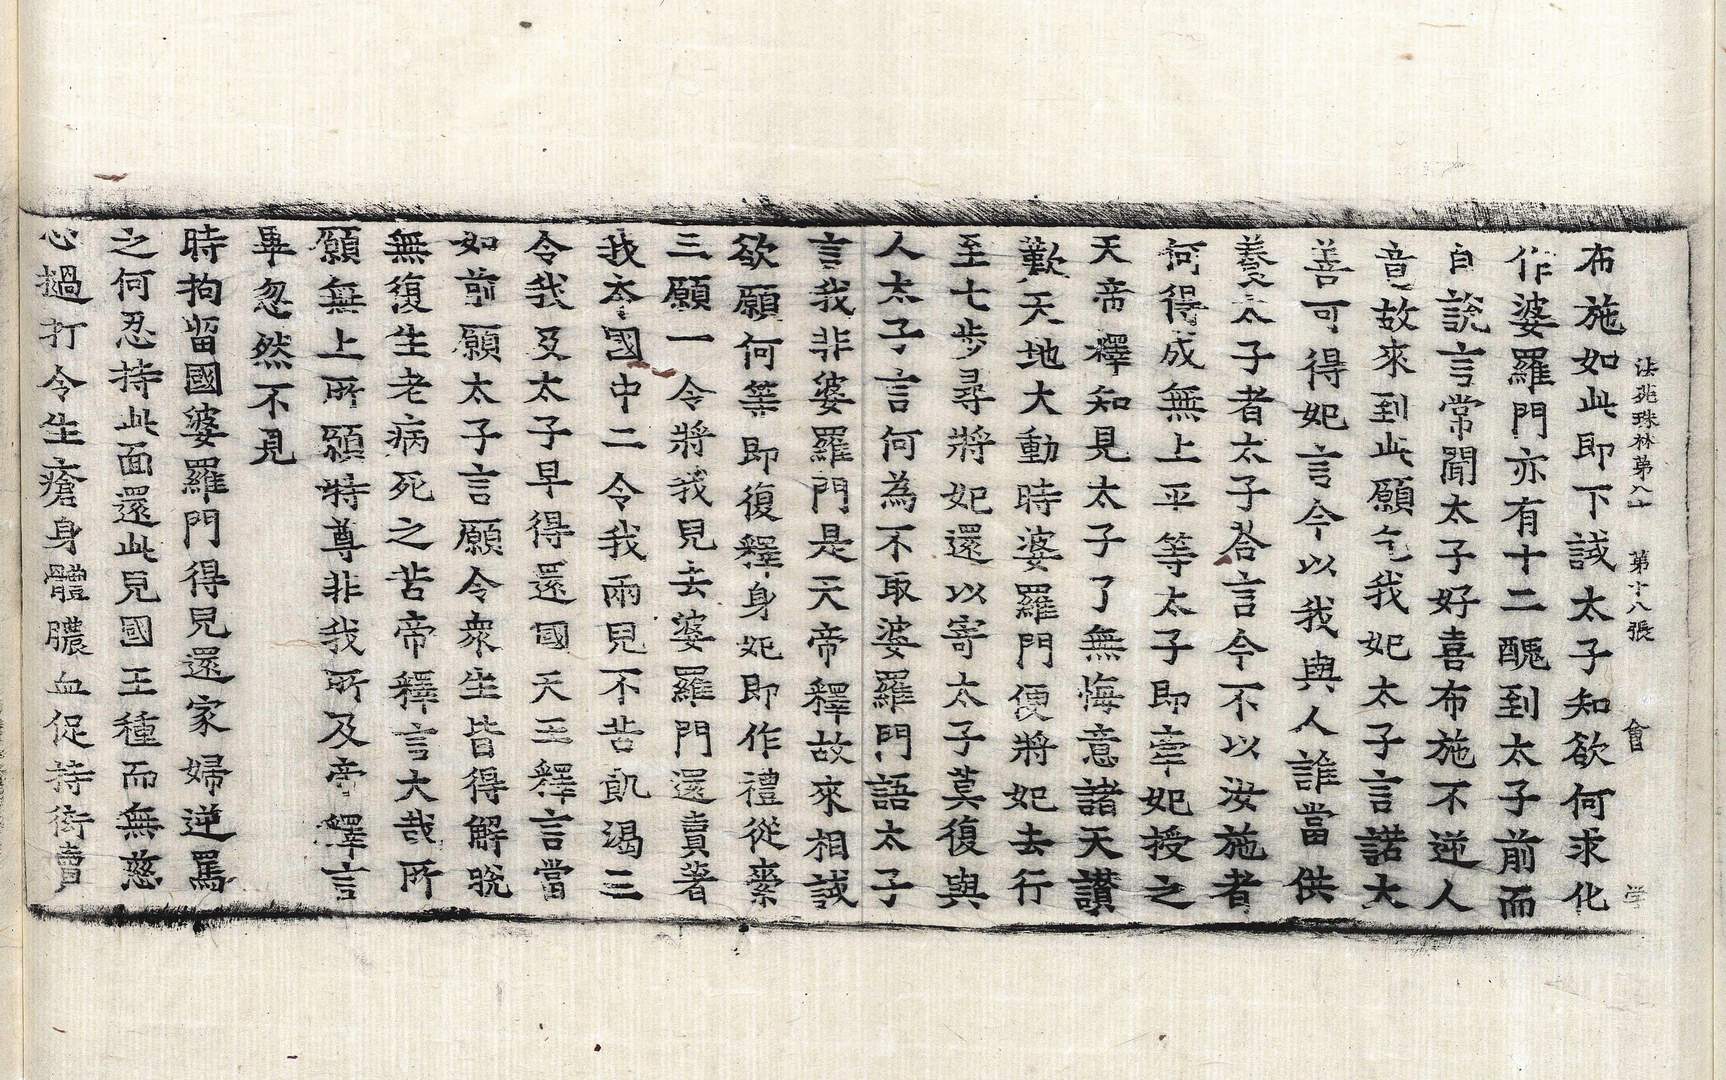 法苑珠林第八十 第十八張 會
布施如此即下誡太子知欲何求化
作婆羅門亦有十二醜到太子前而
自說言常聞太子好喜布施不逆人
意故來到此願乞我妃太子言諾大
善可得妃言今以我與人誰當供
養太子者太子荅言今不以汝施者
何得成無上平等太子即牽妃授之
天帝釋知見太子了無悔意諸天讃
歎天地大動時婆羅門便將妃去行
至七步尋將妃還以寄太子莫復與
人太子言何為不取婆羅門語太子
言我非婆羅門是天帝釋故來相誡
欲願何等即復釋身妃即作禮從索
三願一令將我兒去婆羅門還賣著
我本國中二令我兩兒不苦飢渴三
令我及太子早得還國天王釋言當
如前願太子言願令衆生皆得解脫
無復生老病死之苦帝釋言大哉所
願無上所願特尊非我所及帝釋言
畢忽然不見
時拘留國婆羅門得兒還家婦逆罵
之何忍持此面還此兒國王種而無慈
心撾打令生瘡身體膿血促持衒賣